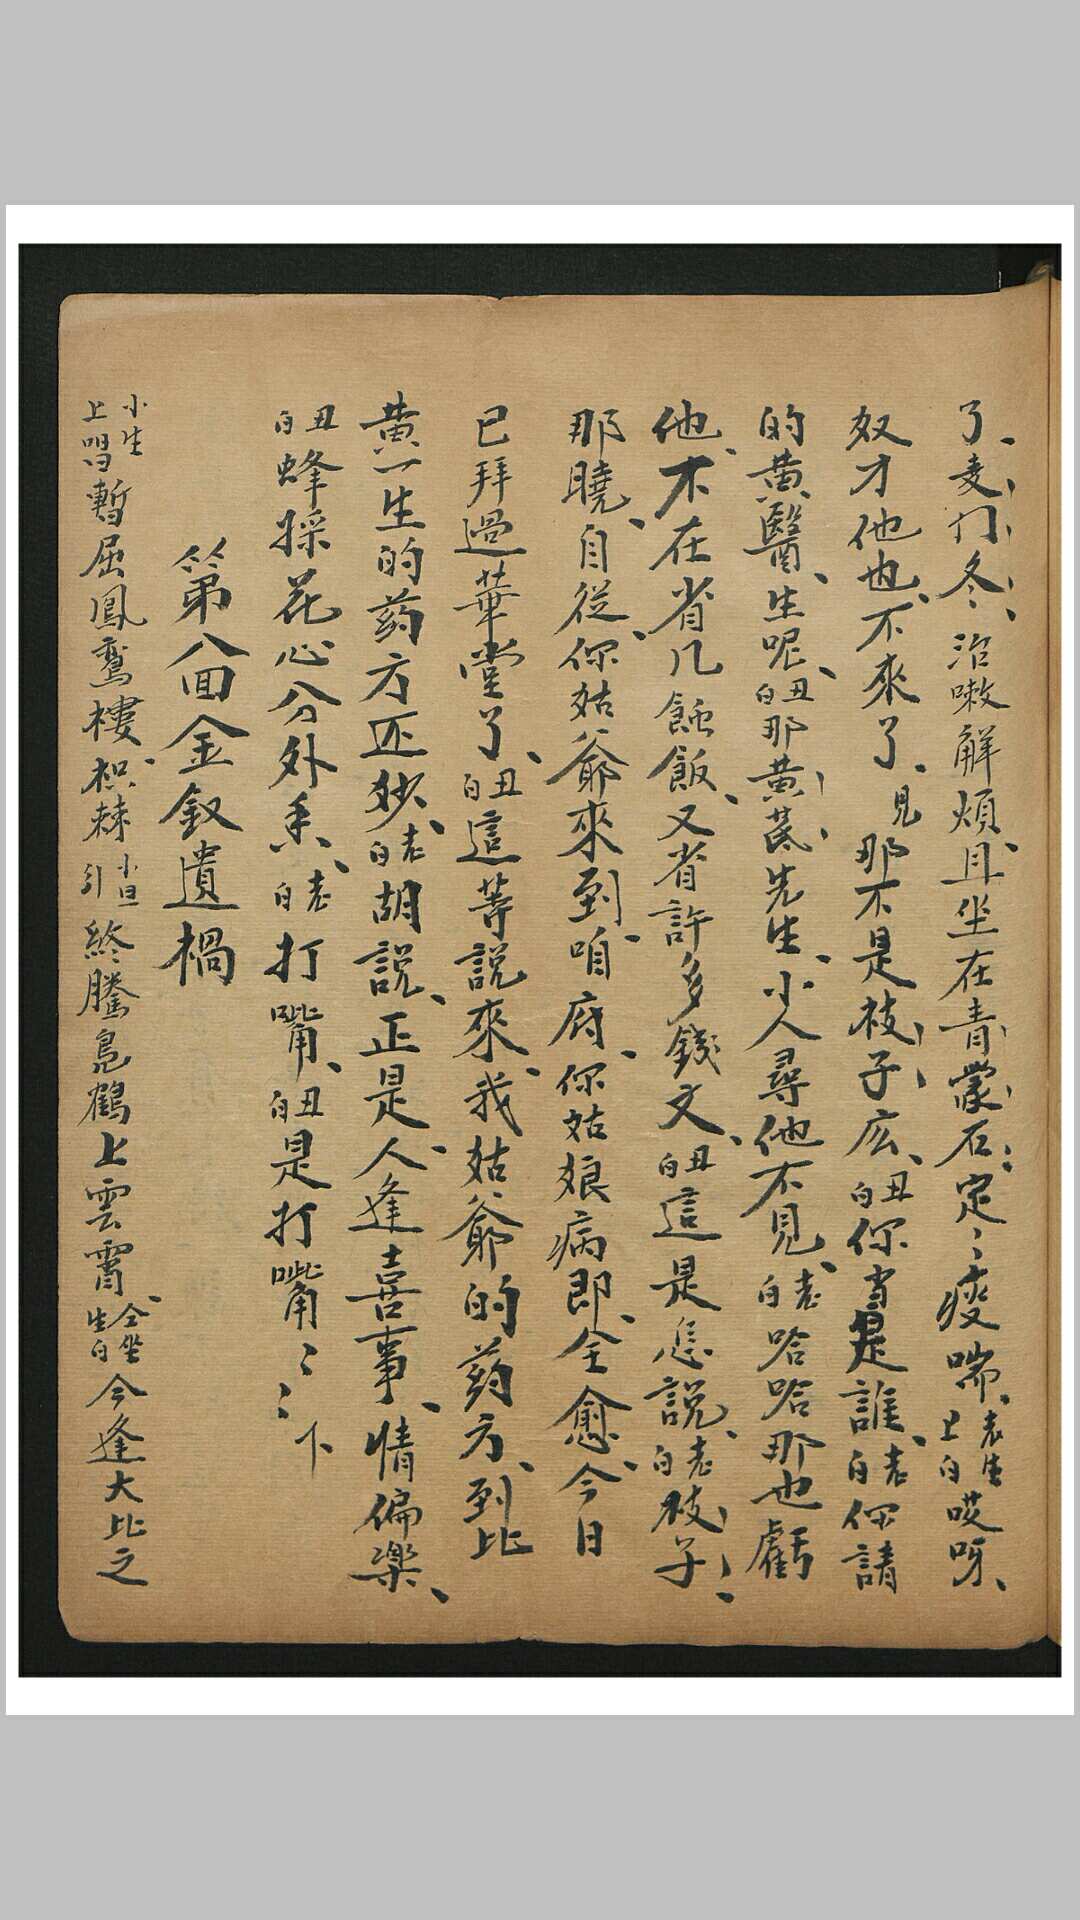 了、麦門冬、治嗽觧煩、且坐在青蒙石、定、痰喘、老生上白哎呀、
奴才他也、不來了、見那不是枝子広、丑白你當是誰、老白你請
的黄醫、生呢、丑白那黄芪先生、小人尋他不見、老白哈哈那也虧
他、不在省几餉飯、又省許多錢文、丑白這是怎説、老白枝子、
那曉、自從、你姑爺來到、咱府、你姑娘病即、全愈、今日
已拜過華堂了、丑白這等説來、我姑爺的药方、到比
黄一生的药方还妙、老白胡説、正是、人逢喜事、情偏樂、
丑白蜂採花心分外香、老白打嘴、丑白是打嘴〻〻下
第八回金釵遺禍
小生上唱暫屈鳳鸞樓、枳棘小旦引終騰鳧鶴上雲霄、仝坐生白今逢大比之